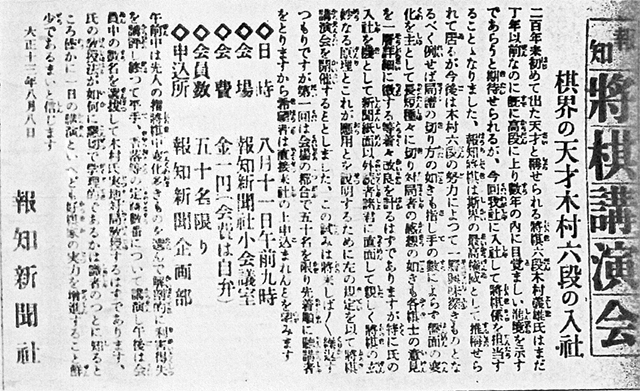 報知 将棋講演会
棋界の天才木村六段の入社
二百年来初めて出た天才と称せられる将棋六段木村義雄氏はまだ
丁年以前なのに既に高段に上り数年の内に目覚ましい進度を示す
であらうと期待せられるが、今回我社に入社して将棋係を担当す
ることゝなりました、報知将棋は斯界の最高権威として推称せら
れて居るが今後は木村六段の努力によつて一層興味深きものとな
るべく例せば局譜の切り方の如きも指し手の数によらず盤面の変
化を主として長短種々に切り対局者の感想の如きも各棋士の意見
を一層詳細に徴する等着々改良を計るはずでありますが特に氏の
入社を機として新聞紙面以外読者諸君に直面して親しく将棋の
妙なる原理とこれが応用とを説明するために左の規定を以て将棋
講演会を開催することゝしました、この試みは将来しばしば繰返す
つもりですが第一回は会場の都合で五十名を限り先着順に聴講者
をとりますから希望者は直接来社の上申込まれんことを望みます
◇日時 八月十一日午前九時
◇会場 報知新聞社小会議室
◇会費 金一円(会費は白弁)
◇会員数 五十名限り
◇申込所 報知新聞企画部
午前中は先人の指将棋中変化あるものを選んで解剖的に利害得失
を講評し終つて平手、香落等の定跡数番について講演し午後は会
員中の数名を選抜して木村氏実地対局教授するはずであります、
氏の教授法が如何に懇切で学理的であるかは識者のつとに知ると
ころ僅かに一日の講演といへども好棋家の実力を増進すること鮮
少であるまいと信じます
大正十二年八月八日
報知新聞社